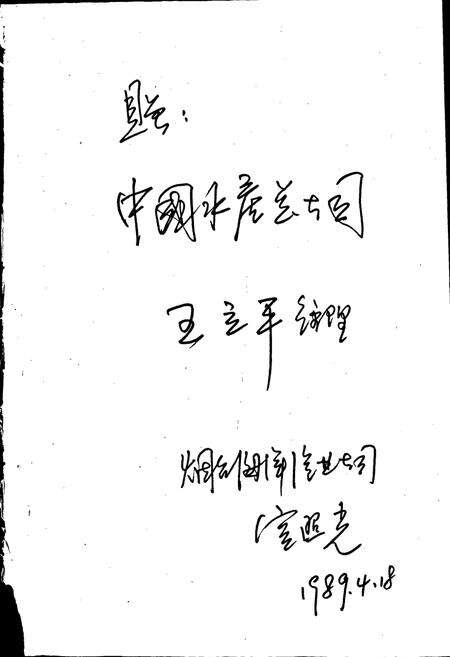 赠：
中國水产总公司
王立平 经理
烟台 公司
照光
1989.4.18